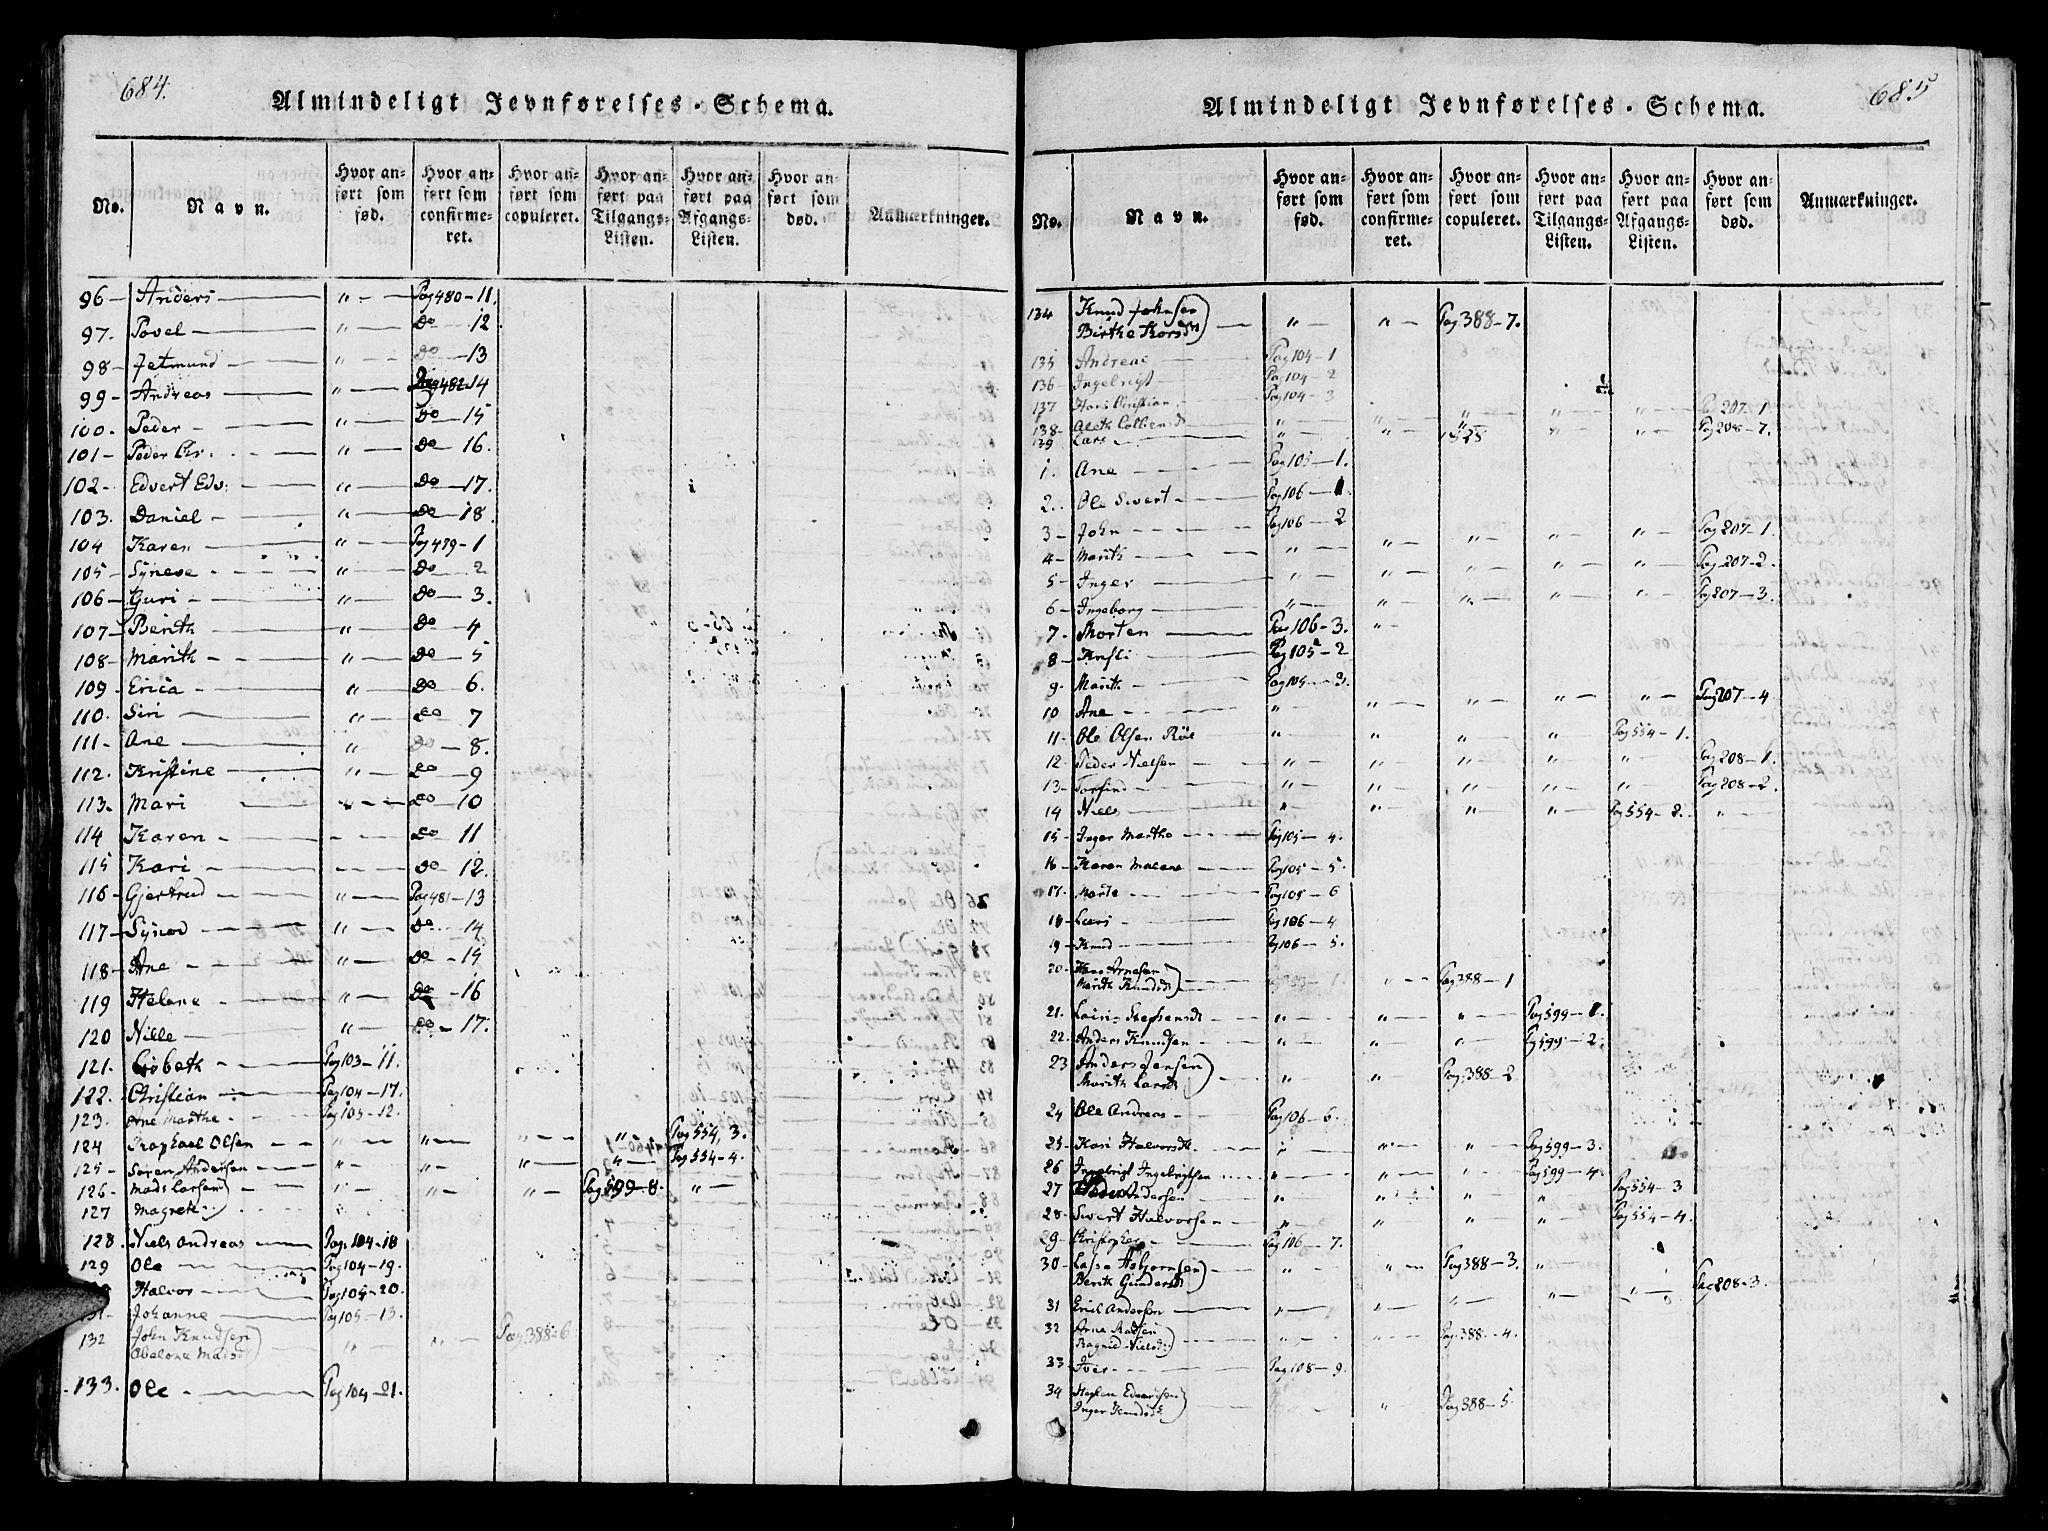 684.
Almindeligt Jevnførelses-Schema.
No. Navn. Hvor anført som fød. Hvor anført som confirmeret. Hvor anført som copuleret. Hvor anført paa Tilgangs-Listen. Hvor anført paa Afgangs-Listen. Hvor anført som død. Anmærkninger.
96 - Anders " - Pag 480-11.
97. Povel " - Do 12
98 - Jetmund " - Do 13
99 - Andreas " - Pag 482-14
100. Peder " - Do 15
101 - Peder Chr. " - Do 16.
102 - Edvert Edv: " - Do 17.
103. Daniel " - Do 18.
104 Karen " - Pag 479-1
105 - Syneva " - Do 2
106 - Guri " - Do 3.
107 - Berith " - Do 4
108 - Marith " - Do 5
109 - Erica " - Do 6.
110. Siri " - Do 7
111 - Ane " - Do 8.
112. Kristine " - Do 9
113. Mari " - Do 10
114 Karen - Do 11
115 Kari - Do 12.
116 - Gjertrud " - Pag 481-13
117 - Synod " - Do 14
118 - Ane " - Do 15
119 Helene " - Do 16
120 Nille " - Do 17.
121. Lisbeth Pag 103-11.
122. Christian Pag 104-17.
123. Ane Marthe Pag 105-12.
124 Raphael Olsen " - " - " - " Pag 554, 3.
125 - Søren Andersen " - " - " - " Pag 554-4.
126 - Mads Larsen) " - " - " - Pag 599-8. " -
127 Magrete)
128. Niels Andreas Pag. 104-18
129 Ole Pag 104-19.
Halvor Pag 104-20.
131 - Johanne Pag 105-13.
132 John Knudsen) " " - Pag 388-6
Abelone Madsd)
133. Ole Pag 104-21.
685
Almindeligt Jevnførelses-Schema.
No. Navn. Hvor anført som fød. Hvor anført som confirmeret. Hvor anført som copuleret. Hvor anført paa Tilgangs-Listen. Hvor anført paa Afgangs-Listen. Hvor anført som død. Anmærkninger.
134 Knud Johnsen) " - " - Pag 388-7.
Birthe Korsdt)
135 Andreas Pag 104-1
136 Ingebrigt Pag 104-2
137 Hans Christian. Pag 104-3
138 - Aleth " - " - " " - " - Pag 207-1
139 Lars " - " - " " - " - Pag 208-7.
1825
1. Ane Pag 105-1.
2. Ole Sivert Pag 106-1.
3 - John Pag 106-2
4 - Marith " - " - " - " - " - Pag 207-1.
5 - Inger " - " - " - " - " - Pag 207-2.
6 - Ingeborg " - " - " - " - " - Pag 207-3.
7 - Morten Pag 106-3. " -
8 - Kristi Pag 105-2
9 - Marith Pag 105-3.
10 Ane " " - " - " - " - Pag 207-4
11 - Ole Olsen Röe " - " - " - " Pag 554-1.
12 - Peder Nielsen " - " - " - " - " - Pag 208-1.
13 - Torfind " - " - " - " - " - Pag 208-2.
14 Niels " " - " - " - Pag 554-2. " -
15 - Inger Marthe Pag 105-4.
16 - Karen Malene Pag 105-5.
17. Marte Pag 105-6
18 - Lars Pag 106-4
19 - Knud Pag 106-5.
20 - Hans Arnesen) " - Pag 388-1
Marith Knudsdt)
21. Stephensdt " - " - " - Pag 599-1.
22. Anders Knudsen " - " - Pag 599-2.
23 Anders Jensen) " - " Pag 388-2
Marith Larsdt)
24 Ole Andreas Pag 106-6.
25 - Kari Halvorsdt. " - " - " Pag 599-3.
26 Ingebrigt Ingebrigtsen " - " - " - Pag 599-4.
27 Peder Andersen " - " - " - " Pag 554-3
28 - Sivert Halvorsen " - " - " - " - Pag 554-4.
29 - Christopher Pag 106-7.
30 - Lasse Asbjørnsen) " - " - Pag 388-3. " -
Berith Gundersdt)
31 Erich Andersen " - " - " - " - " - Pag 208-3.
32 Arne Madsen) " - " - Pag 388-4.
Ragnid Nielsd)
33 - Iver Pag 108-9.
34 Stephen Edvardsen) " - Pag 388-5.
Inger Knudsdt)